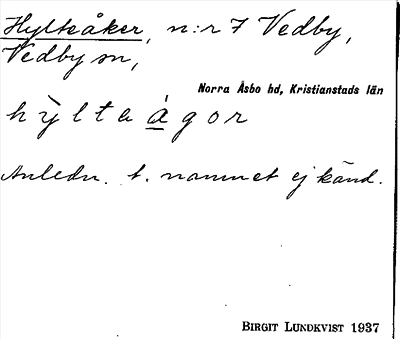 Hylteåker, n:r 7 Vedby,
Vedby sn,
Norra Åsbo hd, Kristianstads län
hỳlteågor
Anledn. t. namnet ej känd.
BIRGIT LUNDKVIST 1937